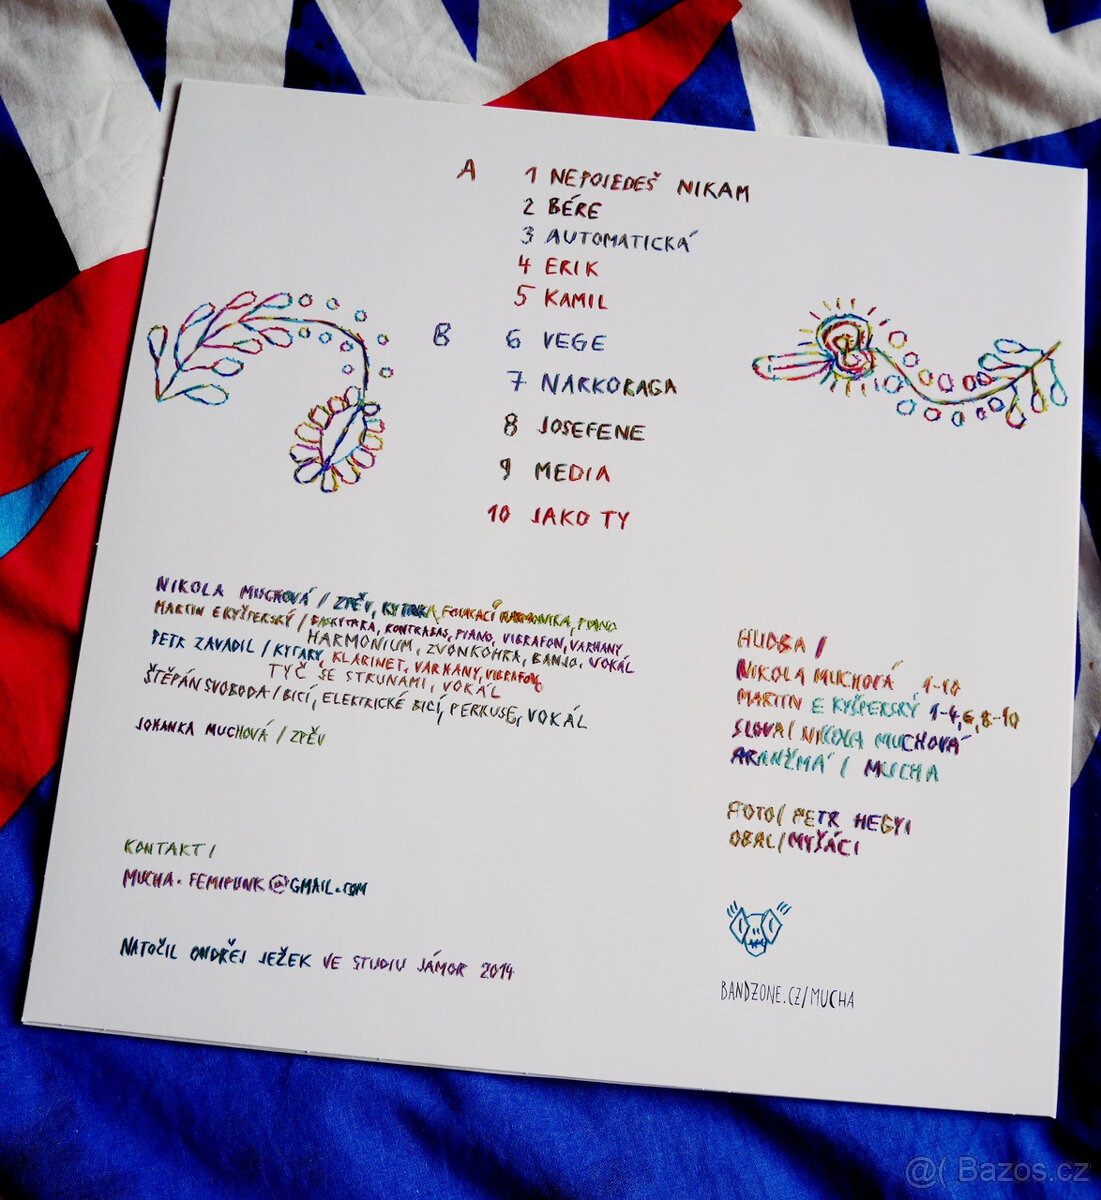 A 1 NEPOJEDEŠ NIKAM
2 BÉRE
3 AUTOMATICKÁ
4 ERIK
5 KAMIL
B 6 VEGE
7 NARKORAGA
8 JOSEFENE
9 MEDIA
10 JAKO TY
NIKOLA MUCHOVÁ / ZPĚV, KYTARA, FOUKACÍ HARMONIKA, PIANO
MARTIN E KYŠPERSKÝ / BASKYTARA, KONTRABAS, PIANO, VIBRAFON, VARHANY
HARMONIUM, ZVONKOHRA, BANJO, VOKÁL
PETR ZAVADIL / KYTARY, KLARINET, VARHANY, VIBRAFON,
TYČ SE STRUNAMI, VOKÁL
ŠTĚPÁN SVOBODA / BICÍ, ELEKTRICKÉ BICÍ, PERKUSE, VOKÁL
JOHANKA MUCHOVÁ / ZPĚV
HUDBA /
NIKOLA MUCHOVÁ 1-10
MARTIN E KYŠPERSKÝ 1-4,6,8-10
SLOVA/ NIKOLA MUCHOVÁ
ARANŽMÁ / MUCHA
FOTO/ PETR HEGYI
OBAL/MYŠÁCI
KONTAKT/
MUCHA.FEMIPUNK@GMAIL.COM
NATOČIL ONDŘEJ JEŽEK VE STUDIU JÁMOR 2014
BANDZONE.CZ/MUCHA
@( Bazos.cz